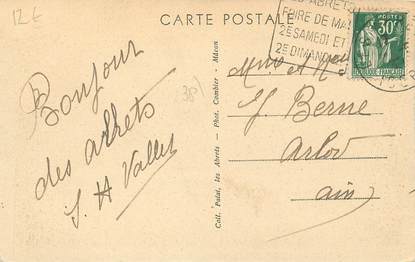 12€
CARTE POSTALE
ABRETS
FOIRE DE MAI
2E SAMEDI ET
2E DIMANCHE
POSTES
30c
RÉPUBLIQUE FRANÇAISE
Bonjour
des abrets
J. H Vallet
Coll. Palat, les Abrets - Phot. Combier - Mâcon
Berne
Ain